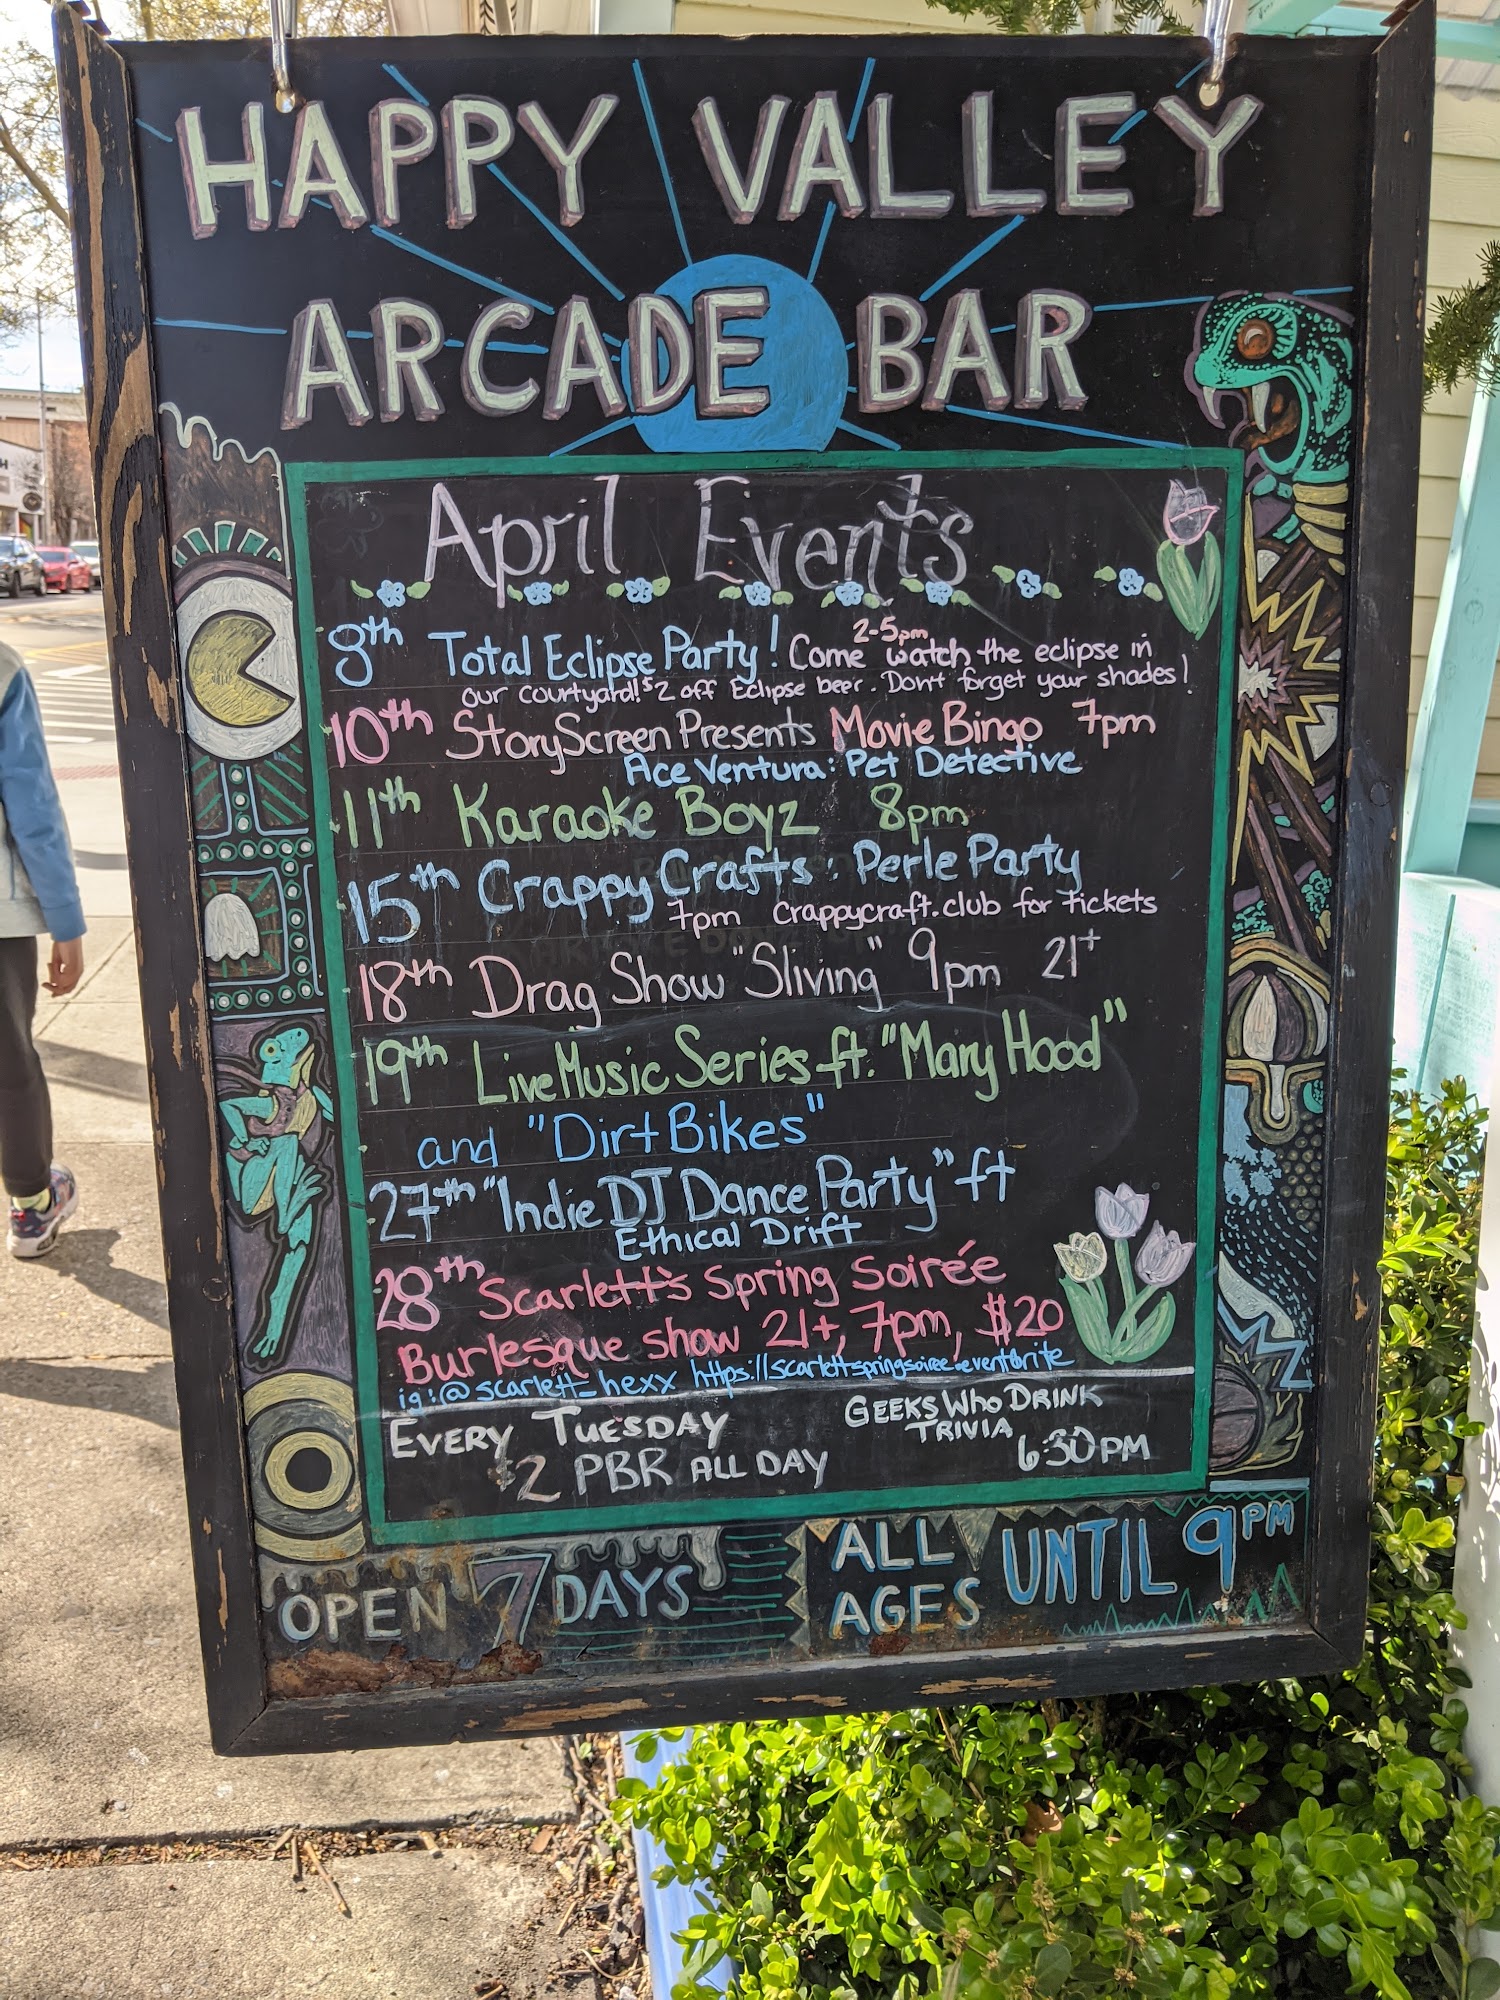 HAPPY VALLEY
ARCADE BAR
April Events
8th Total Eclipse Party! Come watch the eclipse in
2-5pm
our courtyard! $2 off Eclipse beer. Don't forget your shades!
10th StoryScreen Presents Movie Bingo 7pm
Ace Ventura: Pet Detective
11th Karaoke Boyz 8pm
15th Crappy Crafts: Perle Party
7pm crappycraft.club for tickets
18th Drag Show "Sliving" 9pm 21+
19th Live Music Series ft. "Mary Hood"
and "Dirt Bikes"
27th "Indie DJ Dance Party" ft
Ethical Drift
28th Scarlett's Spring Soirée
Burlesque show 21+, 7pm, $20
ig:@scarlett_hexx https://scarlettspringsoiree.eventbrite
EVERY TUESDAY
$2 PBR ALL DAY
GEEKS WHO DRINK
TRIVIA
6:30PM
OPEN 7 DAYS
ALL AGES UNTIL 9PM